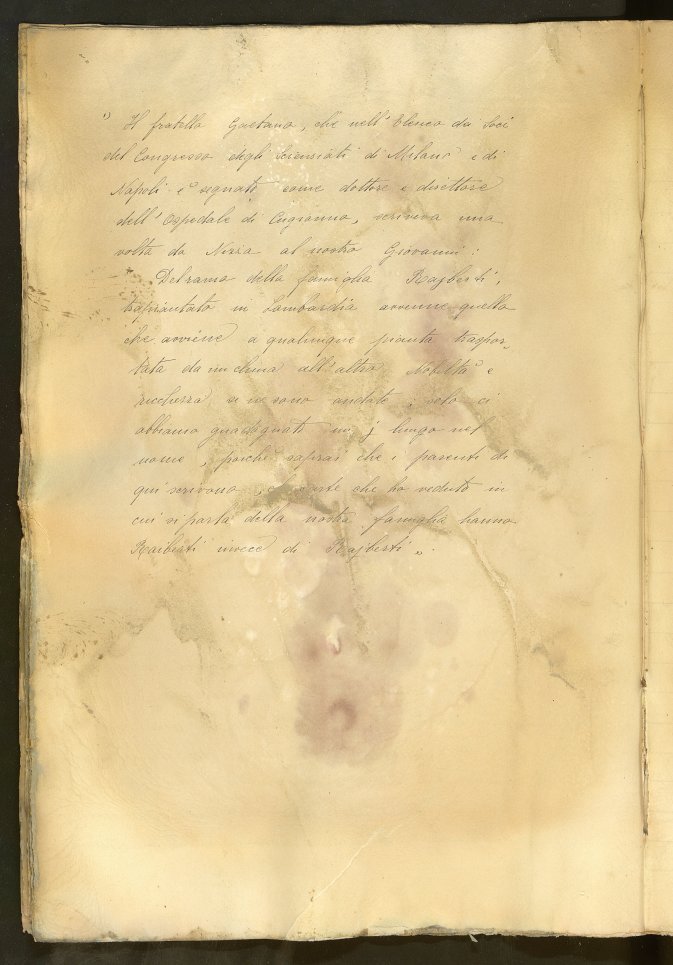 1) Il fratello Gaetano, che nell' Elenco dei Soci
del Congresso degli Scienziati di Milano e di
Napoli è segnato come dottore e direttore
dell' Ospedale di Cugionno, scriveva una
volta da Nizza al nostro Giovanni:
" Del ramo della famiglia Rajberti,
trapiantato in Lombardia avvenne quello
che avviene a qualunque pianta traspor-
tata da un clima all' altro. Nobiltà e
ricchezza se ne sono andate; solo ci
abbiamo guadagnati un j lungo nel
nome, poichè saprai che i parenti di
qui scrivono, e le carte che ho veduto in
cui si parla della nostra famiglia hanno
Raiberti invece di Rajberti ".